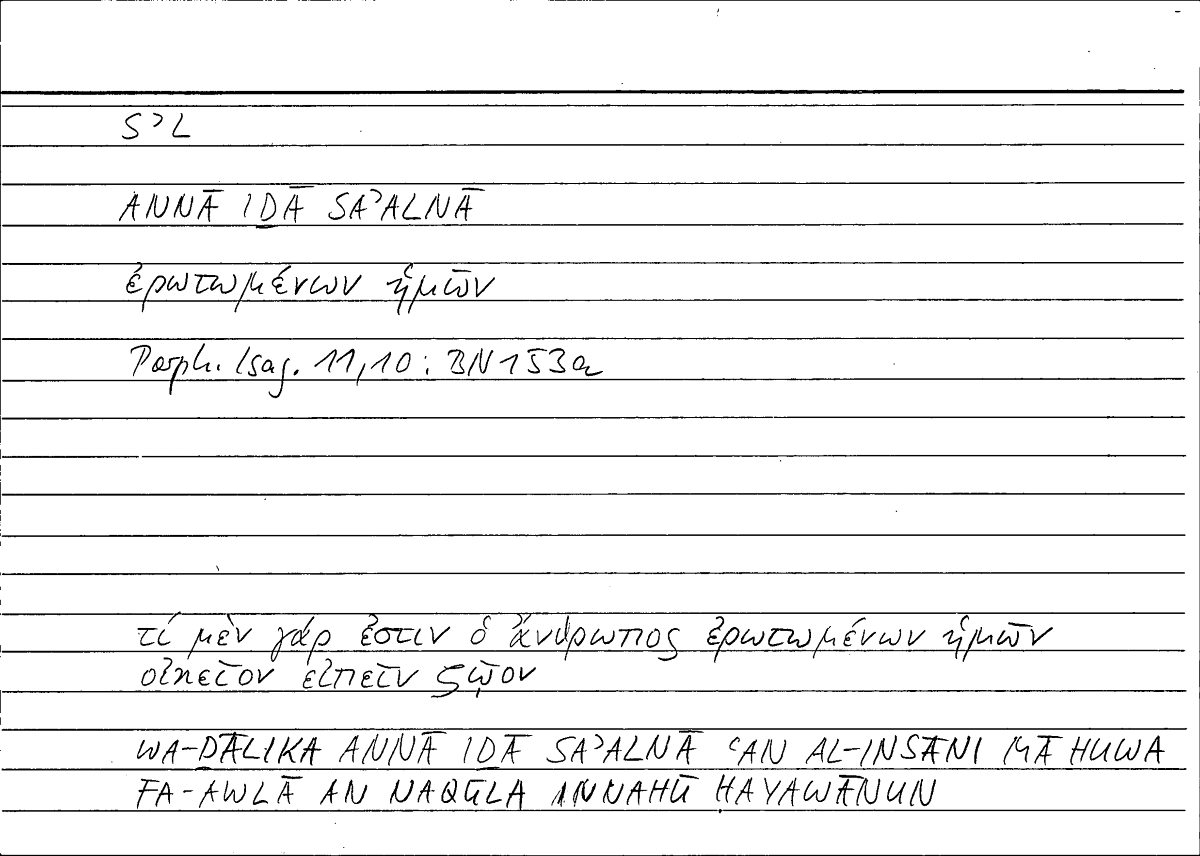 SʾL
ANNĀ IḎĀ SAʾALNĀ
ἐρωτωμένων ἡμῶν
Porph. Isag. 11,10 : BN 153a
τί μὲν γάρ ἐστιν ὁ ἄνθρωπος ἐρωτωμένων ἡμῶν
οἰκεῖον εἰπεῖν ζῷον
WA-ḎĀLIKA ANNĀ IḎĀ SAʾALNĀ ʿAN AL-INSĀNI MĀ HUWA
FA-AWLĀ AN NAQŪLA INNAHŪ ḤAYAWĀNUN